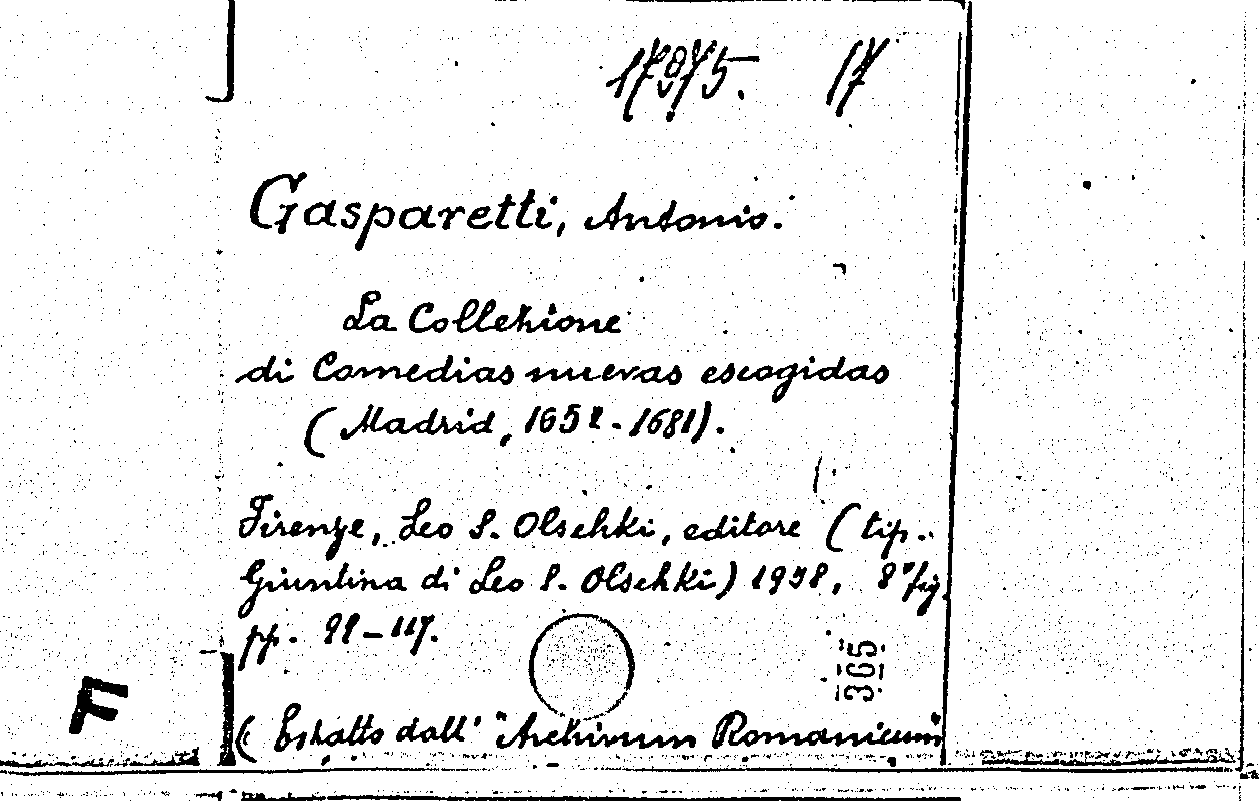 17875. 17
Gasparetti, Antonio.
La Collezione
di Comedias nuevas escogidas
(Madrid, 1652-1681).
Firenze, Leo S. Olschki, editore (tip.
Giuntina di Leo S. Olschki) 1938, 8° fig.
pp. 98-117.
365
F
(Estratto dall' "Archivum Romanicum"